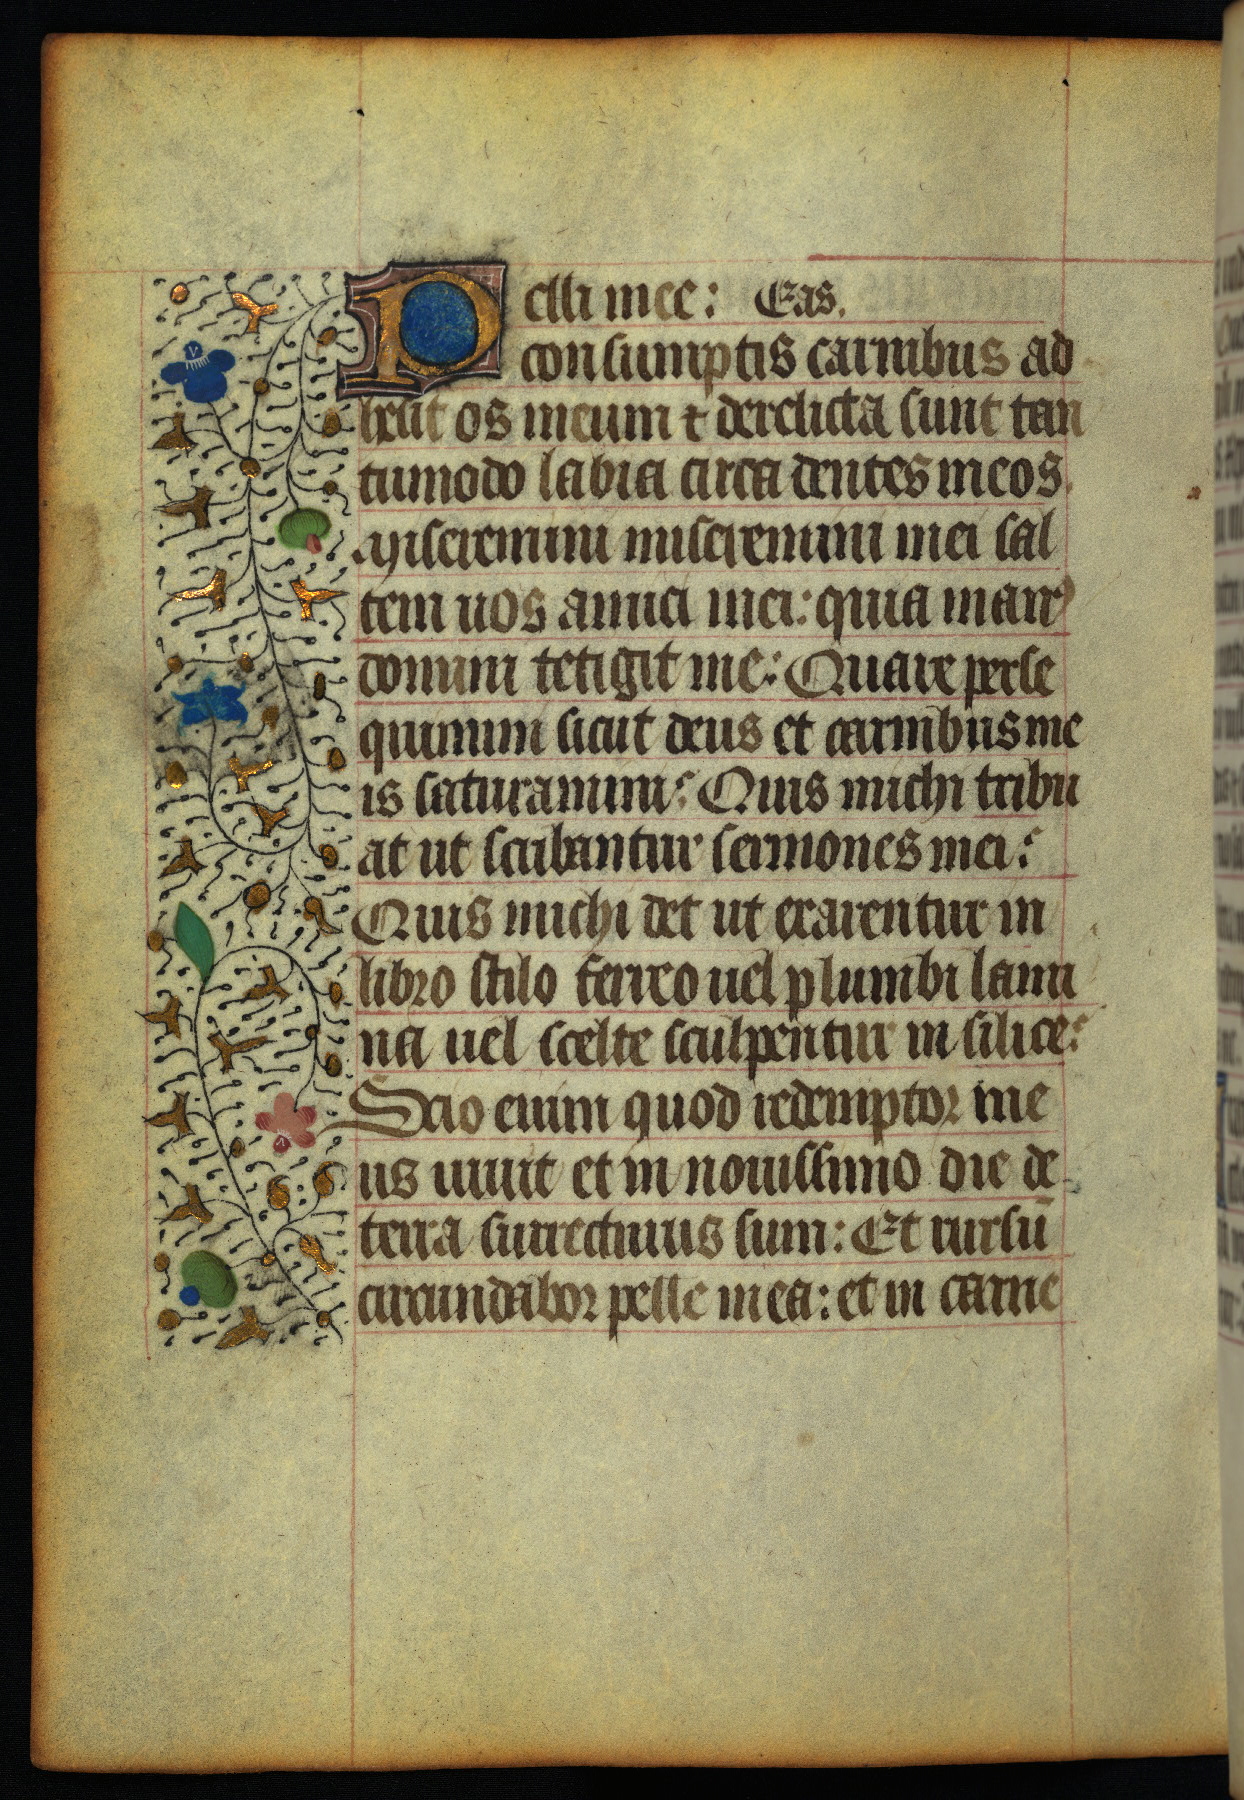 Pelli mee: Eas.
consumptis carnibus ad
hesit os meum ⁊ derelicta sunt tan
tumodo labia circa dentes meos.
Miseremini miseremini mei sal
tem uos amici mei: quia man9
domini tetigit me: Quare perse
quimini sicut deus et carnibus me
is saturamini: Quis michi tribu
at ut scribantur sermones mei:
Quis michi det ut exarentur in
libro stilo ferreo uel plumbi lami
na uel scelte sculpentur in silice:
Scio enim quod redemptor me
us uiuit et in nouissimo die de
terra surrecturus sum: Et rursū
circundabor pelle mea: et in carne